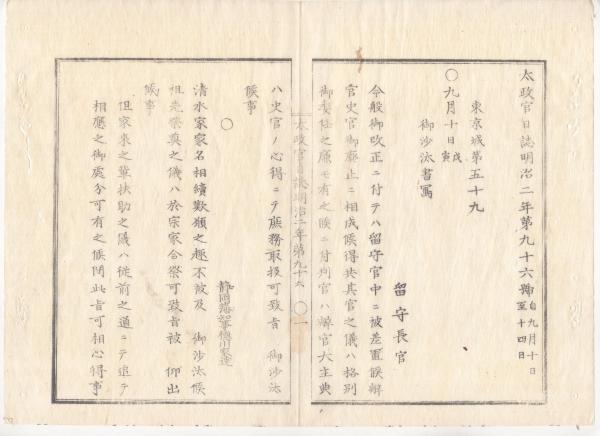 太政官日誌明治二年第九十六號 自九月十日至十四日
東京城第五十九
○九月十日 戊寅
御沙汰書寫
留守長官
今般御改正ニ付テハ留守官中ニ被差置候辨
官史官御廢止ニ相成候得共真官之儀ハ格別
御委任之廉モ有之候ニ付判官ハ辨官大主典
太政官日誌明治二年第九十六 ○一
ハ史官ノ心得ニテ庶務取扱可致旨 御沙汰
候事
○
静岡藩知事徳川家達
清水家家名相續歎願之趣不被及 御沙汰候
祖先祭奠之儀ハ於宗家合祭可致旨被 仰出
候事
但家来之輩扶助之儀ハ従前之通ニテ追テ
相應之御處分可有之候間此旨可相心得事